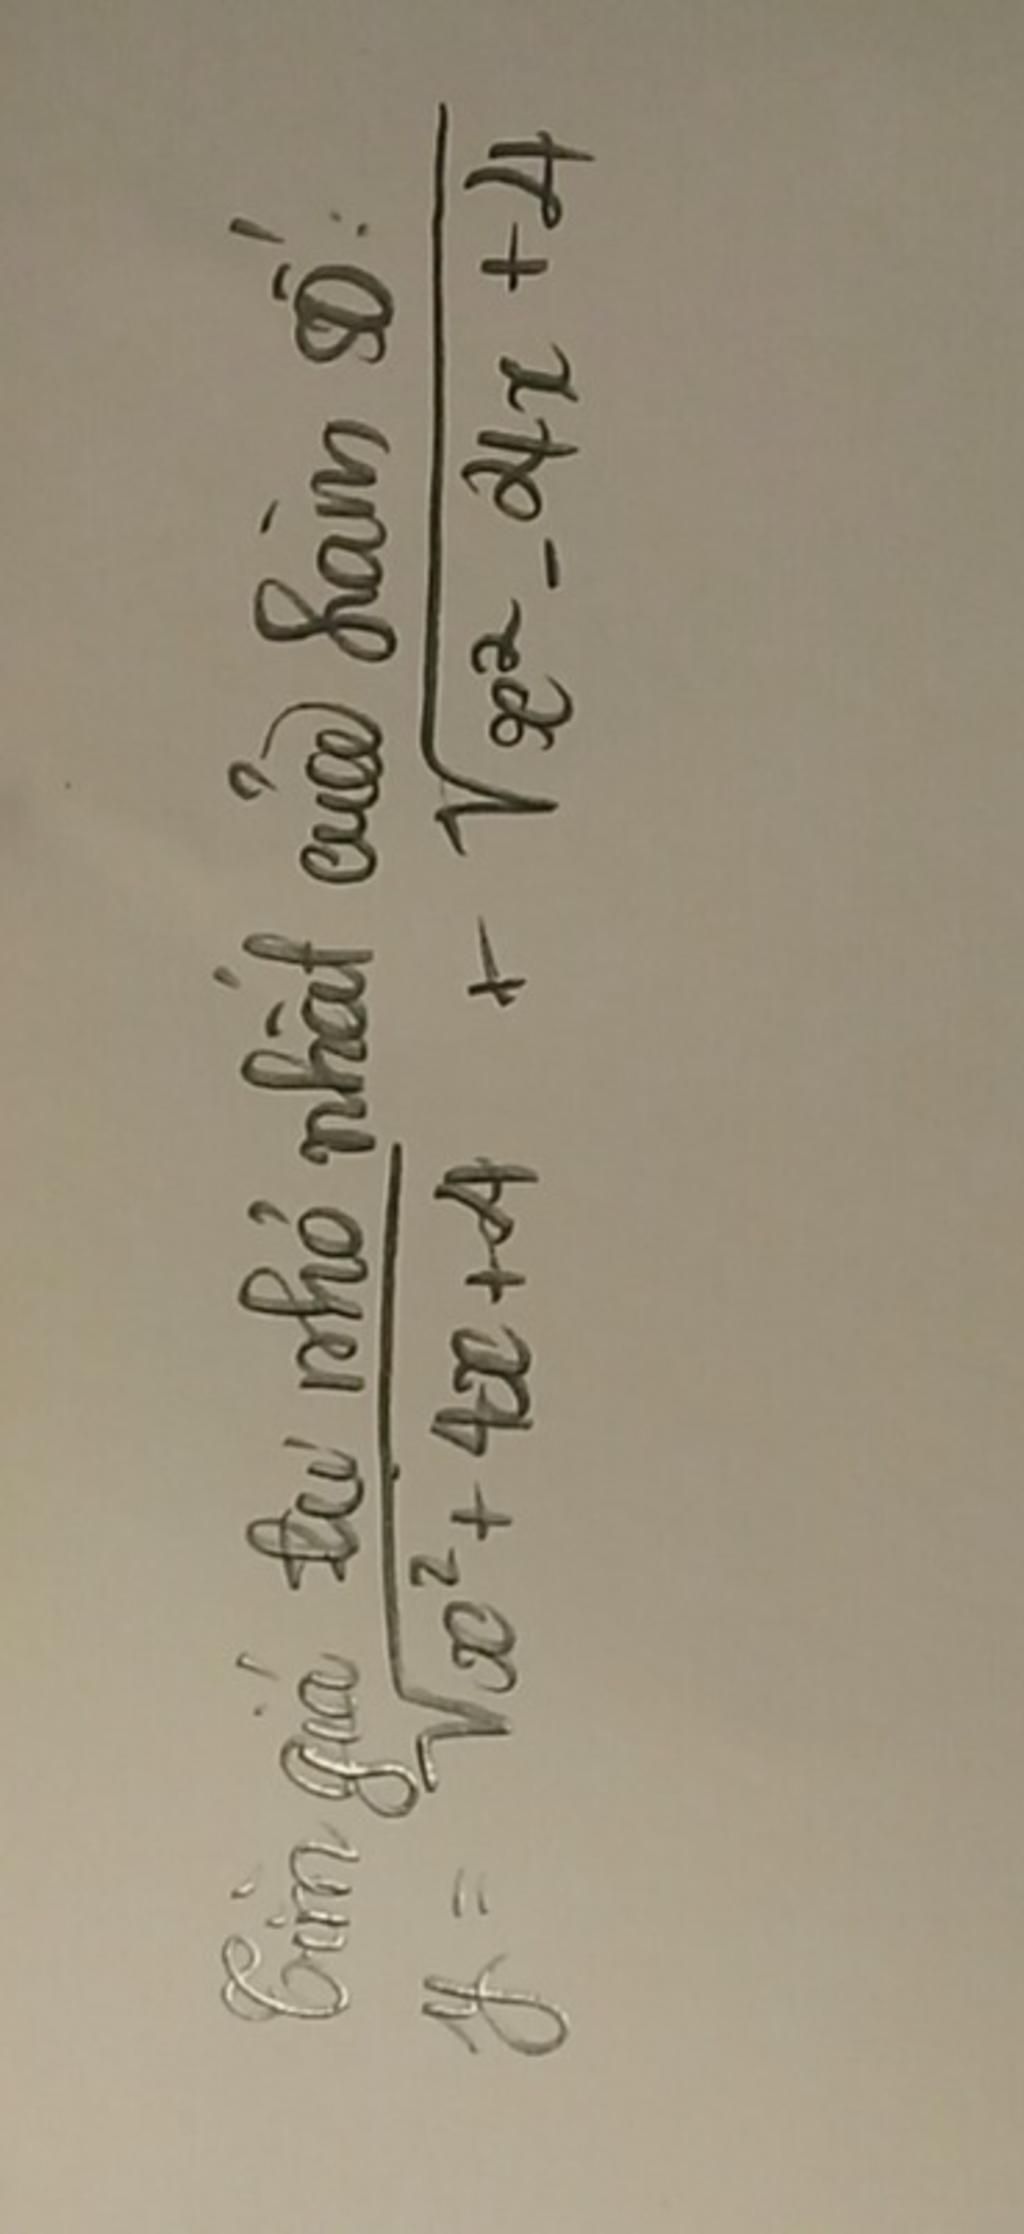 Tìm giá trị nhỏ nhất của hàm số:
y = √x² + 4x + 4 + √x² - 4x + 4